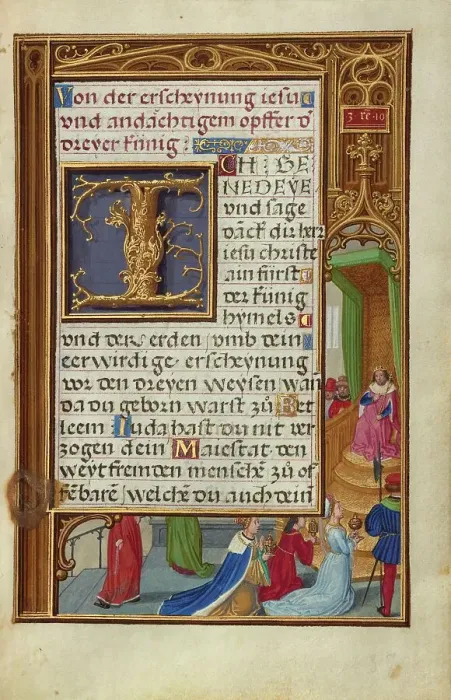 Von der erscheynung iesu
vnd andächtigem opffer d̕
dreyer künig :
3 · re · 10
ICH · GE
NEDEYE
vnd sage
dāck dir herr
iesu christe
ain fürst
der künig
hymels
vnd der erden / vmb dein
eerwirdige · erscheynung
vor den dreyen weysen wan̄
da du geborn warst zů Bet
leem Iuda hast du nit ver
zogen dein Maiestat den
weyt fremden menschē zů of
fēbarē / welchē du auch dein